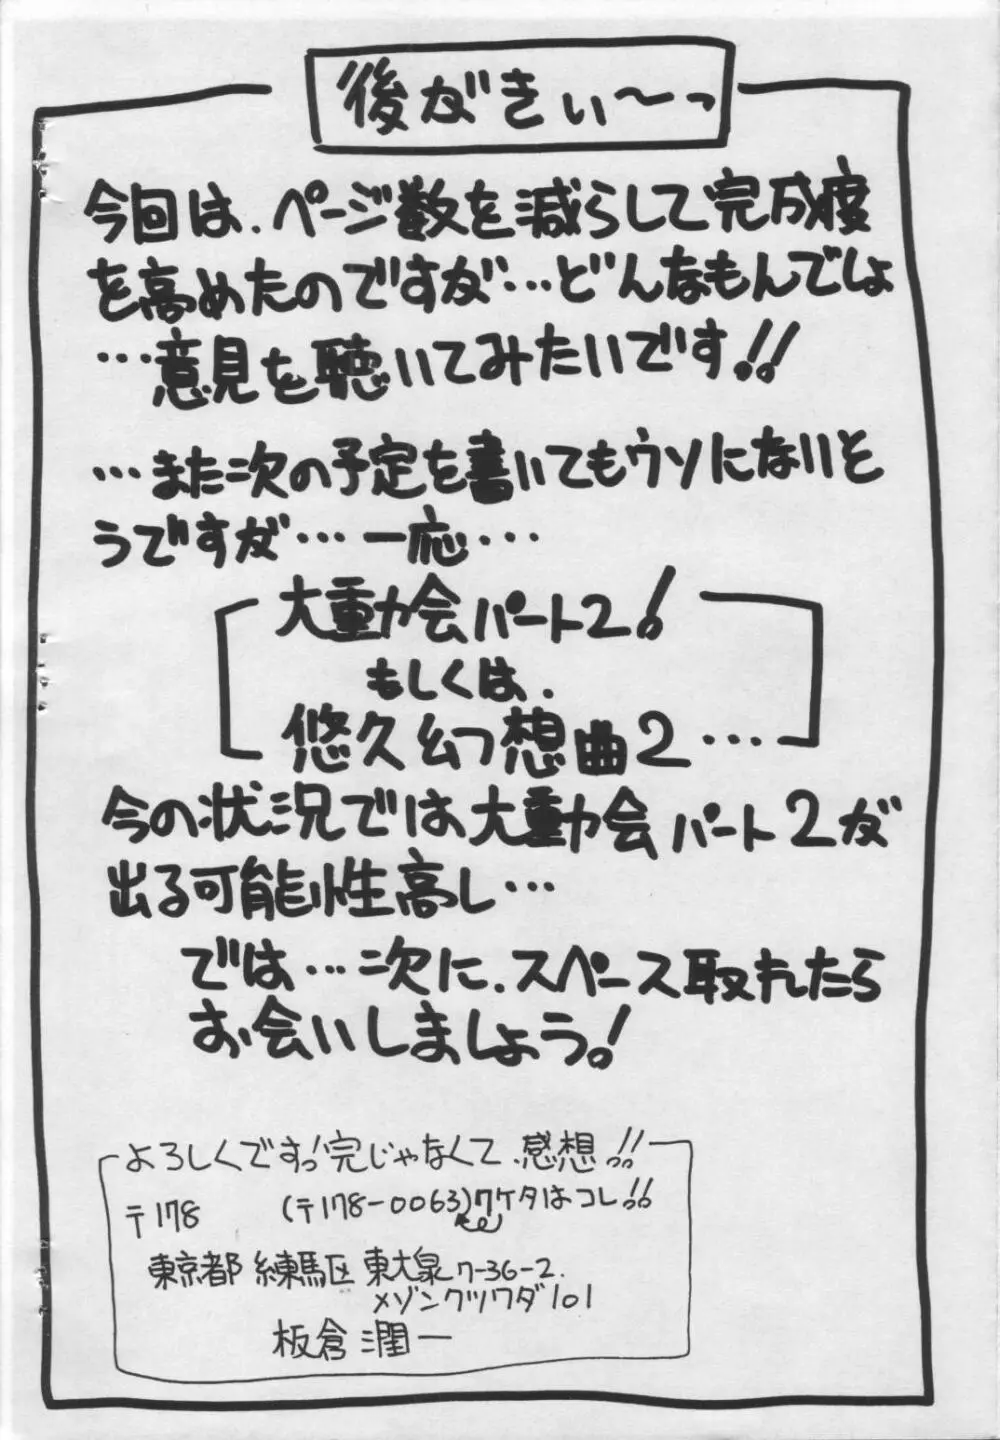 後がきぃ〜っ
今回は、ページ数を減らして完成度
を高めたのですが…どんなもんでしょ
…意見を聴いてみたいです!!
…また次の予定を書いてもウソにないと
うですが…一応…
大重力会パート2!
もしくは、
悠久幻想曲2…
今の状況では大動力会パート2が
出る可能性高し…
では…次に、スペース取れたら
お会いしましょう!
よろしくですっ!完じゃなくて、感想!!
〒178 (〒178-0063)7ケタはコレ!!
東京都 練馬区 東大泉7-36-2.
メゾンクツワダ101
板倉 潤一